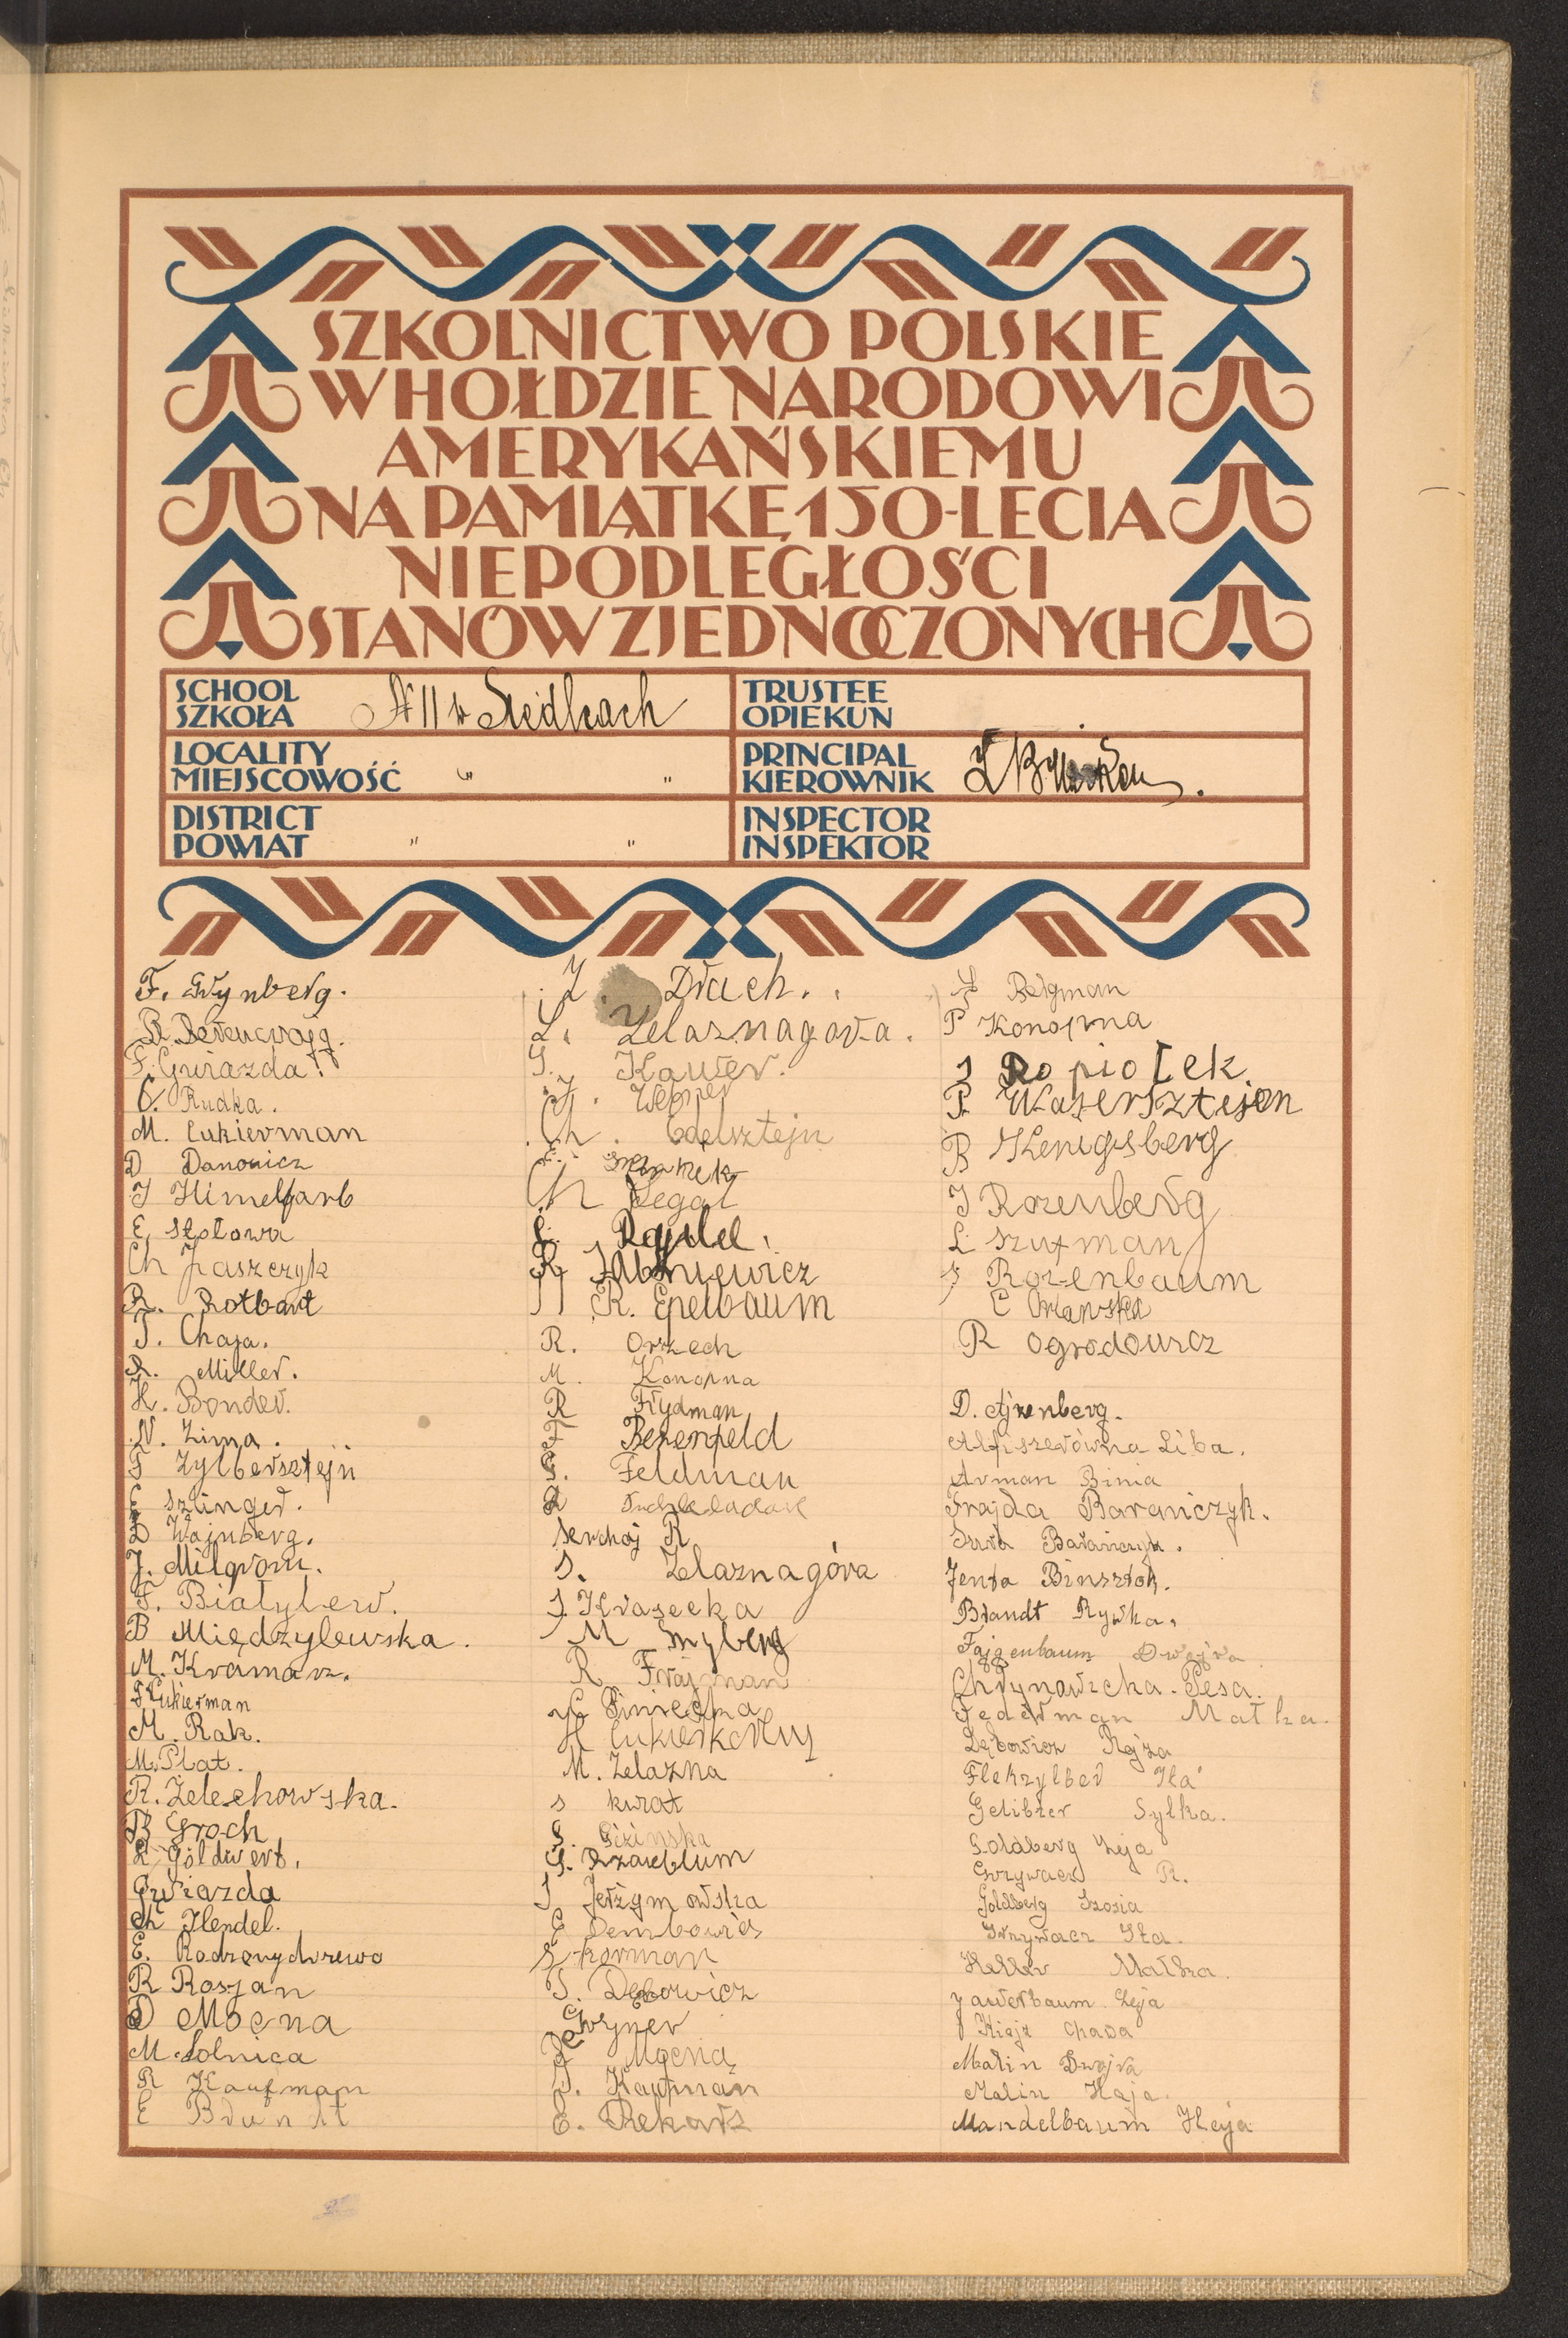 SZKOLNICTWO POLSKIE
W HOŁDZIE NARODOWI
AMERYKAŃSKIEMU
NA PAMIĄTKĘ 150-LECIA
NIEPODLEGŁOŚCI
STANÓW ZJEDNOCZONYCH
SCHOOL
SZKOŁA
N 11 w Siedlcach
TRUSTEE
OPIEKUN
LOCALITY
MIEJSCOWOŚĆ " "
PRINCIPAL
KIEROWNIK
DISTRICT
POWIAT " "
INSPECTOR
INSPEKTOR
F. Grynberg.
R.
F. Gwiazda.
C. Rudka.
M. Cukierman
D Danowicz
J Himelfarb
E. Stołowa
Ch Jpaszczyk
R. Rotbart
T. Chaja.
R. Miller.
H. Bonder.
N. Zima.
F Zylbersztejn
E szlinger.
D Wajnberg.
J. Milgrom.
F. Białylew.
B Międzylewska.
M. Kramarz.
F Cukierman
M. Rak.
M. Plat.
R. Żelechowska.
B Groch
L. Goldwert.
Gwiazda
Ch Hendel.
E. Rodzonydrzewo
R Rosjan
D Mocna
M. Solnica
R Kaufman
E Brunkt
J. Drach.
L. Żelaznagora.
G. Kawer.
J. Weber
Ch. Edelsztejn
E.
Ch Segal
E. Rajdel.
R Jabłniewicz
R. Epelbaum
R. Orzech
M. Konopna
R Frydman
F Berenfeld
G. Feldman
R
Serchaj R
S. Żelaznagóra
J. Krasecka
M Smyberg
R Frajman
H Cukierkorny
M. Żelazna
S kwrat
G. Gizinska
G. Rzazeblum
J Jerzymowska
E Dembowicz
S korman
T. Dębowicz
Grejner
R Mocna
J. Kaufman
E. Rekarz
S Bergman
P Konopna
J Popiołek
P. Wasersztejen
B Kenigsberg
J Rozenberg
L Szufman
J Rozenbaum
C Orlanska
R Ogrodowicz
D. Ajzenberg.
Alfiszerówna Liba.
Arman Binia
Frajda Barańczyk.
Sura Barańczyk.
Jenta Binsztok.
Brandt Rywka.
Fajgenbaum Dwojra
Chrynowicha. Pesa.
Federman Małka.
Dębowicz Rejza
Flekzylber Ita
Gelibter Sylka.
Goldberg Leja
Grzywacz R.
Goldberg Szosia
Grzywacz Ita.
Heller Małka.
Jawerbaum Leja
Kiejz Chawa
Malin Dwojra
Malin Haja.
Mandelbaum Heja